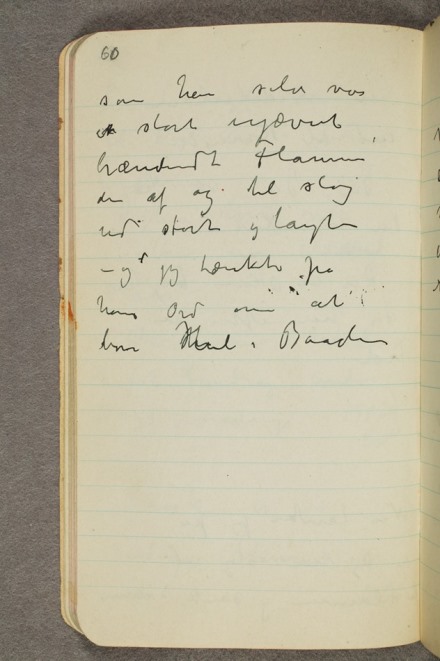 60
som han selv var
et stort ujævnt
brændendt Flamme,
der af og til slog
ud stort og langt
– og jeg tænkte på
hans Ord om "at"
bore Hul i Baaden